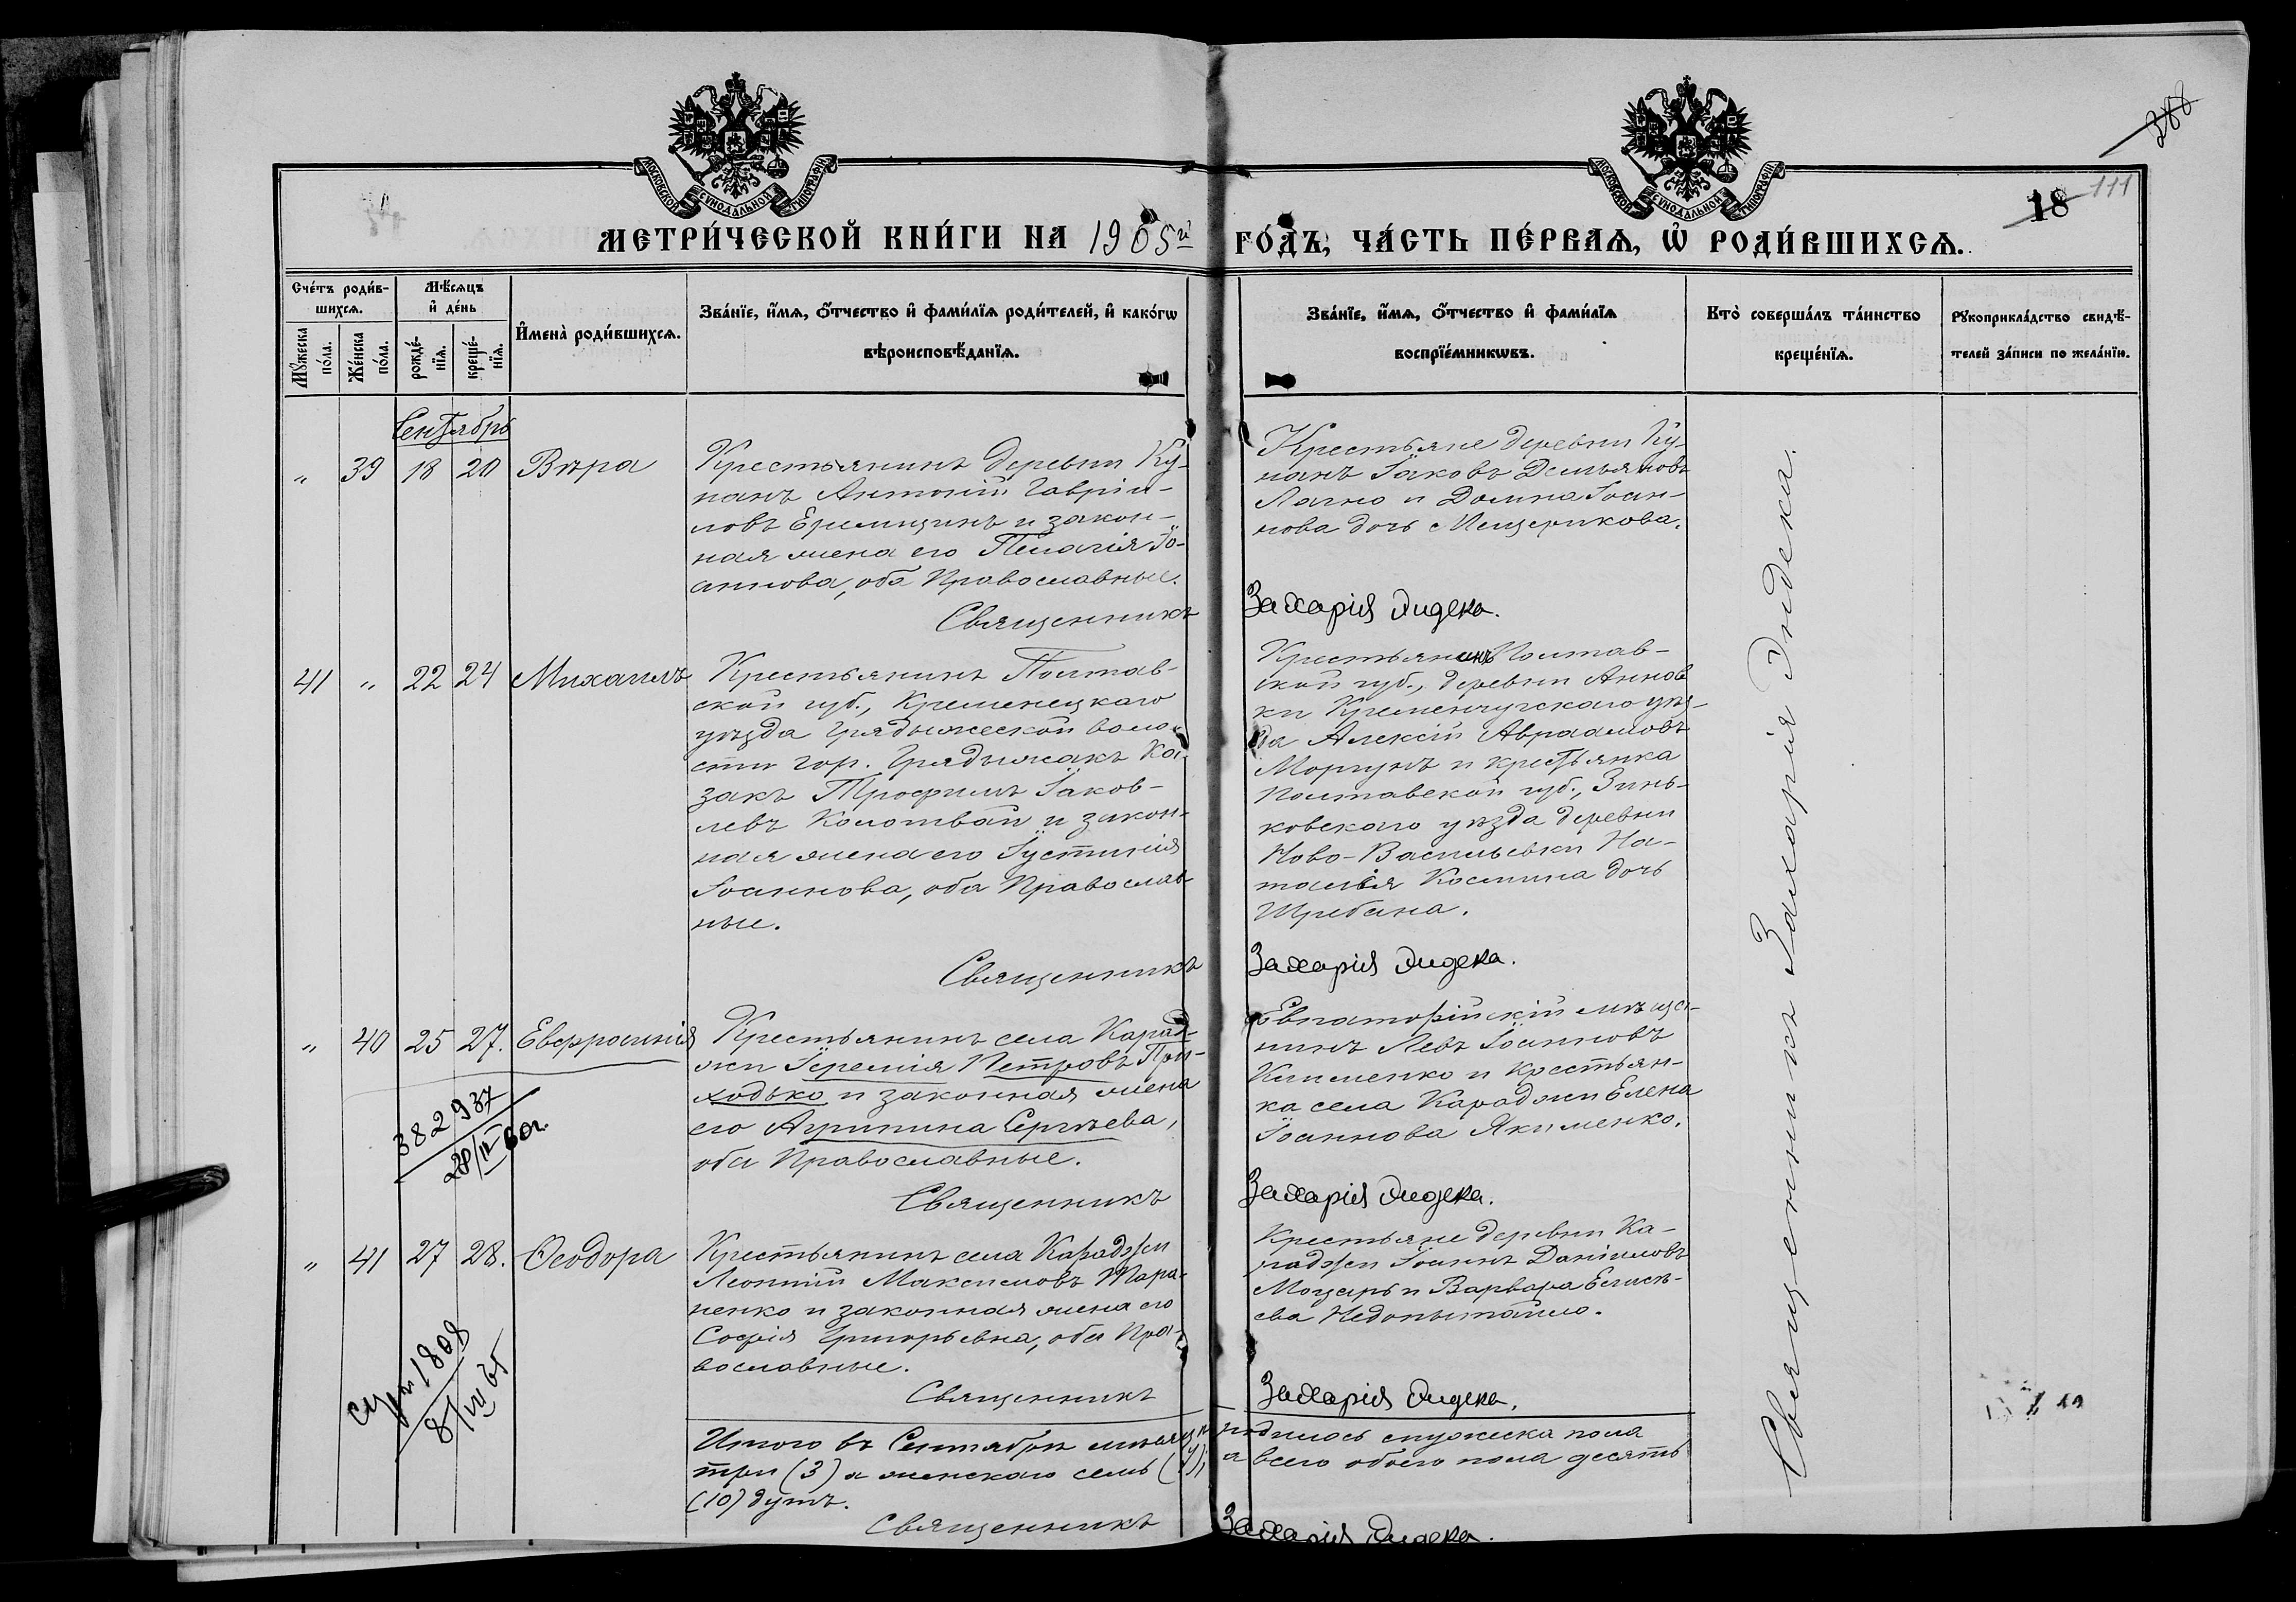 388
18 111
МОСКОВСКОЙ СѴНОДАЛЬНОЙ ТИПОГРАФІИ
МОСКОВСКОЙ СѴНОДАЛЬНОЙ ТИПОГРАФІИ
МЕТРИ́ЧЕСКОЙ КНИ́ГИ НА 1905й ГО́ДЪ, ЧА́СТЬ ПЕ́РВАѦ, Ѡ҆ РОДИ́ВШИХСѦ.
Сче́тъ роди́в-
шихсѧ.
Мꙋжеска по́ла.
Же́нска по́ла.
Мѣ́сѧцъ
и҆ де́нь
рожде́-
нїѧ.
креще́-
нїѧ.
И҆мена̀ роди́вшихсѧ.
Зва́нїе, и҆́мѧ, ѻ҆́тчество и҆ фами́лїѧ роди́телей, и҆ како́гѡ
вѣроисповѣ́данїѧ.
Зва́нїе, и҆́мѧ, ѻ҆́тчество и҆ фами́лїѧ
воспрїе́мникѡвъ.
Кто̀ соверша́лъ та́инство
креще́нїѧ.
Рꙋкоприкла́дство свидѣ́-
телей за́писи по жела́нїю.
Сентябрь
" 39 18 20 Вѣра
Крестьянинъ деревни Ку-
нанъ Антоній Гавріи-
ловъ и закон-
ная жена его Пелагія Іо-
аннова, оба Православные.
Священникъ
Крестьяне деревни Ку-
нанъ Іаковъ Демьяновъ
Лагно и Домна Іоан-
нова дочь Мещерикова.
Захарія Дидека.
41 " 22 24 Михаилъ
Крестьянинъ Полтав-
ской губ., Кременецкаго
уѣзда Градижеской воло-
сти гор. Градижакъ Ко-
закъ Трофимъ Іаков-
левъ Колотвай и закон-
ная жена его Іустинія
Іоаннова, оба Православ-
ные.
Священникъ
Крестьянинъ Полтав-
ской губ., деревни Аннов
ки Кременчугскаго уѣз-
да Алексій Авраамовъ
Моргунъ и крестьянка
Полтавской губ., Зинь-
ковскаго уѣзда деревни
Ново-Васильевки На-
талія Космина дочь
Шребина.
Захарія Дидека.
" 40 25 27. Евфросинія
Крестьянинъ села Карад-
жи Іеремія Петровъ При-
ходько и законная жена
его Агрипина Сергѣева,
оба Православные.
Священникъ
Евпаторійскій мѣща-
нинъ Левъ Іоанновъ
Клименко и Крестьян-
ка села Караджи Елена
Іоаннова Якименко.
Захарія Дидека.
382937
28/II 60г.
" 41 27 28. Ѳеодора
Крестьянинъ села Караджи
Леонтій Максимовъ Тара-
ненко и законная жена его
Софія Григорьевна, оба Пра-
вославные.
Священникъ
Крестьяне деревни Ка-
раджи Іоаннъ Даніиловъ
Моцарь и Варвара Елисѣ-
ева Недопытайло.
Захарія Дидека.
1808
8/VII 65
Итого въ Сентябрѣ мѣсяцѣ родилось мужеска пола
три (3) а женскаго семь (7), а всего обоего пола десять
(10) душъ.
Священникъ Захарія Дидека.
Священникъ Захарія Дидека.